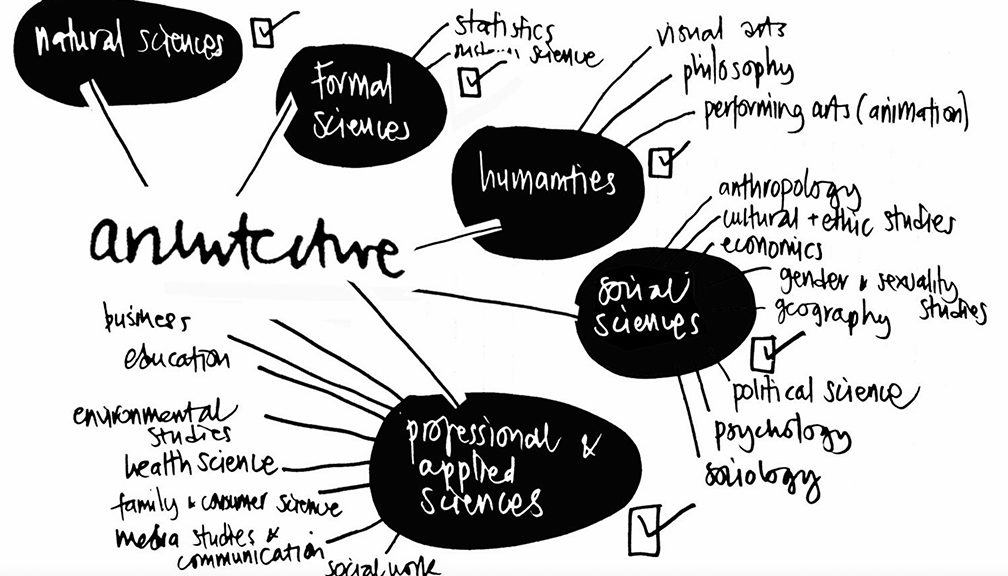 natural sciences
Formal
sciences
statistics
science
visual arts
philosophy
performing arts (animation)
humanities
architecture
anthropology
cultural + ethic studies
economics
gender & sexuality
studies
geography
social
sciences
political science
psychology
sociology
business
education
environmental
studies
health science
family & consumer science
media studies &
communication
social work
professional &
applied
sciences